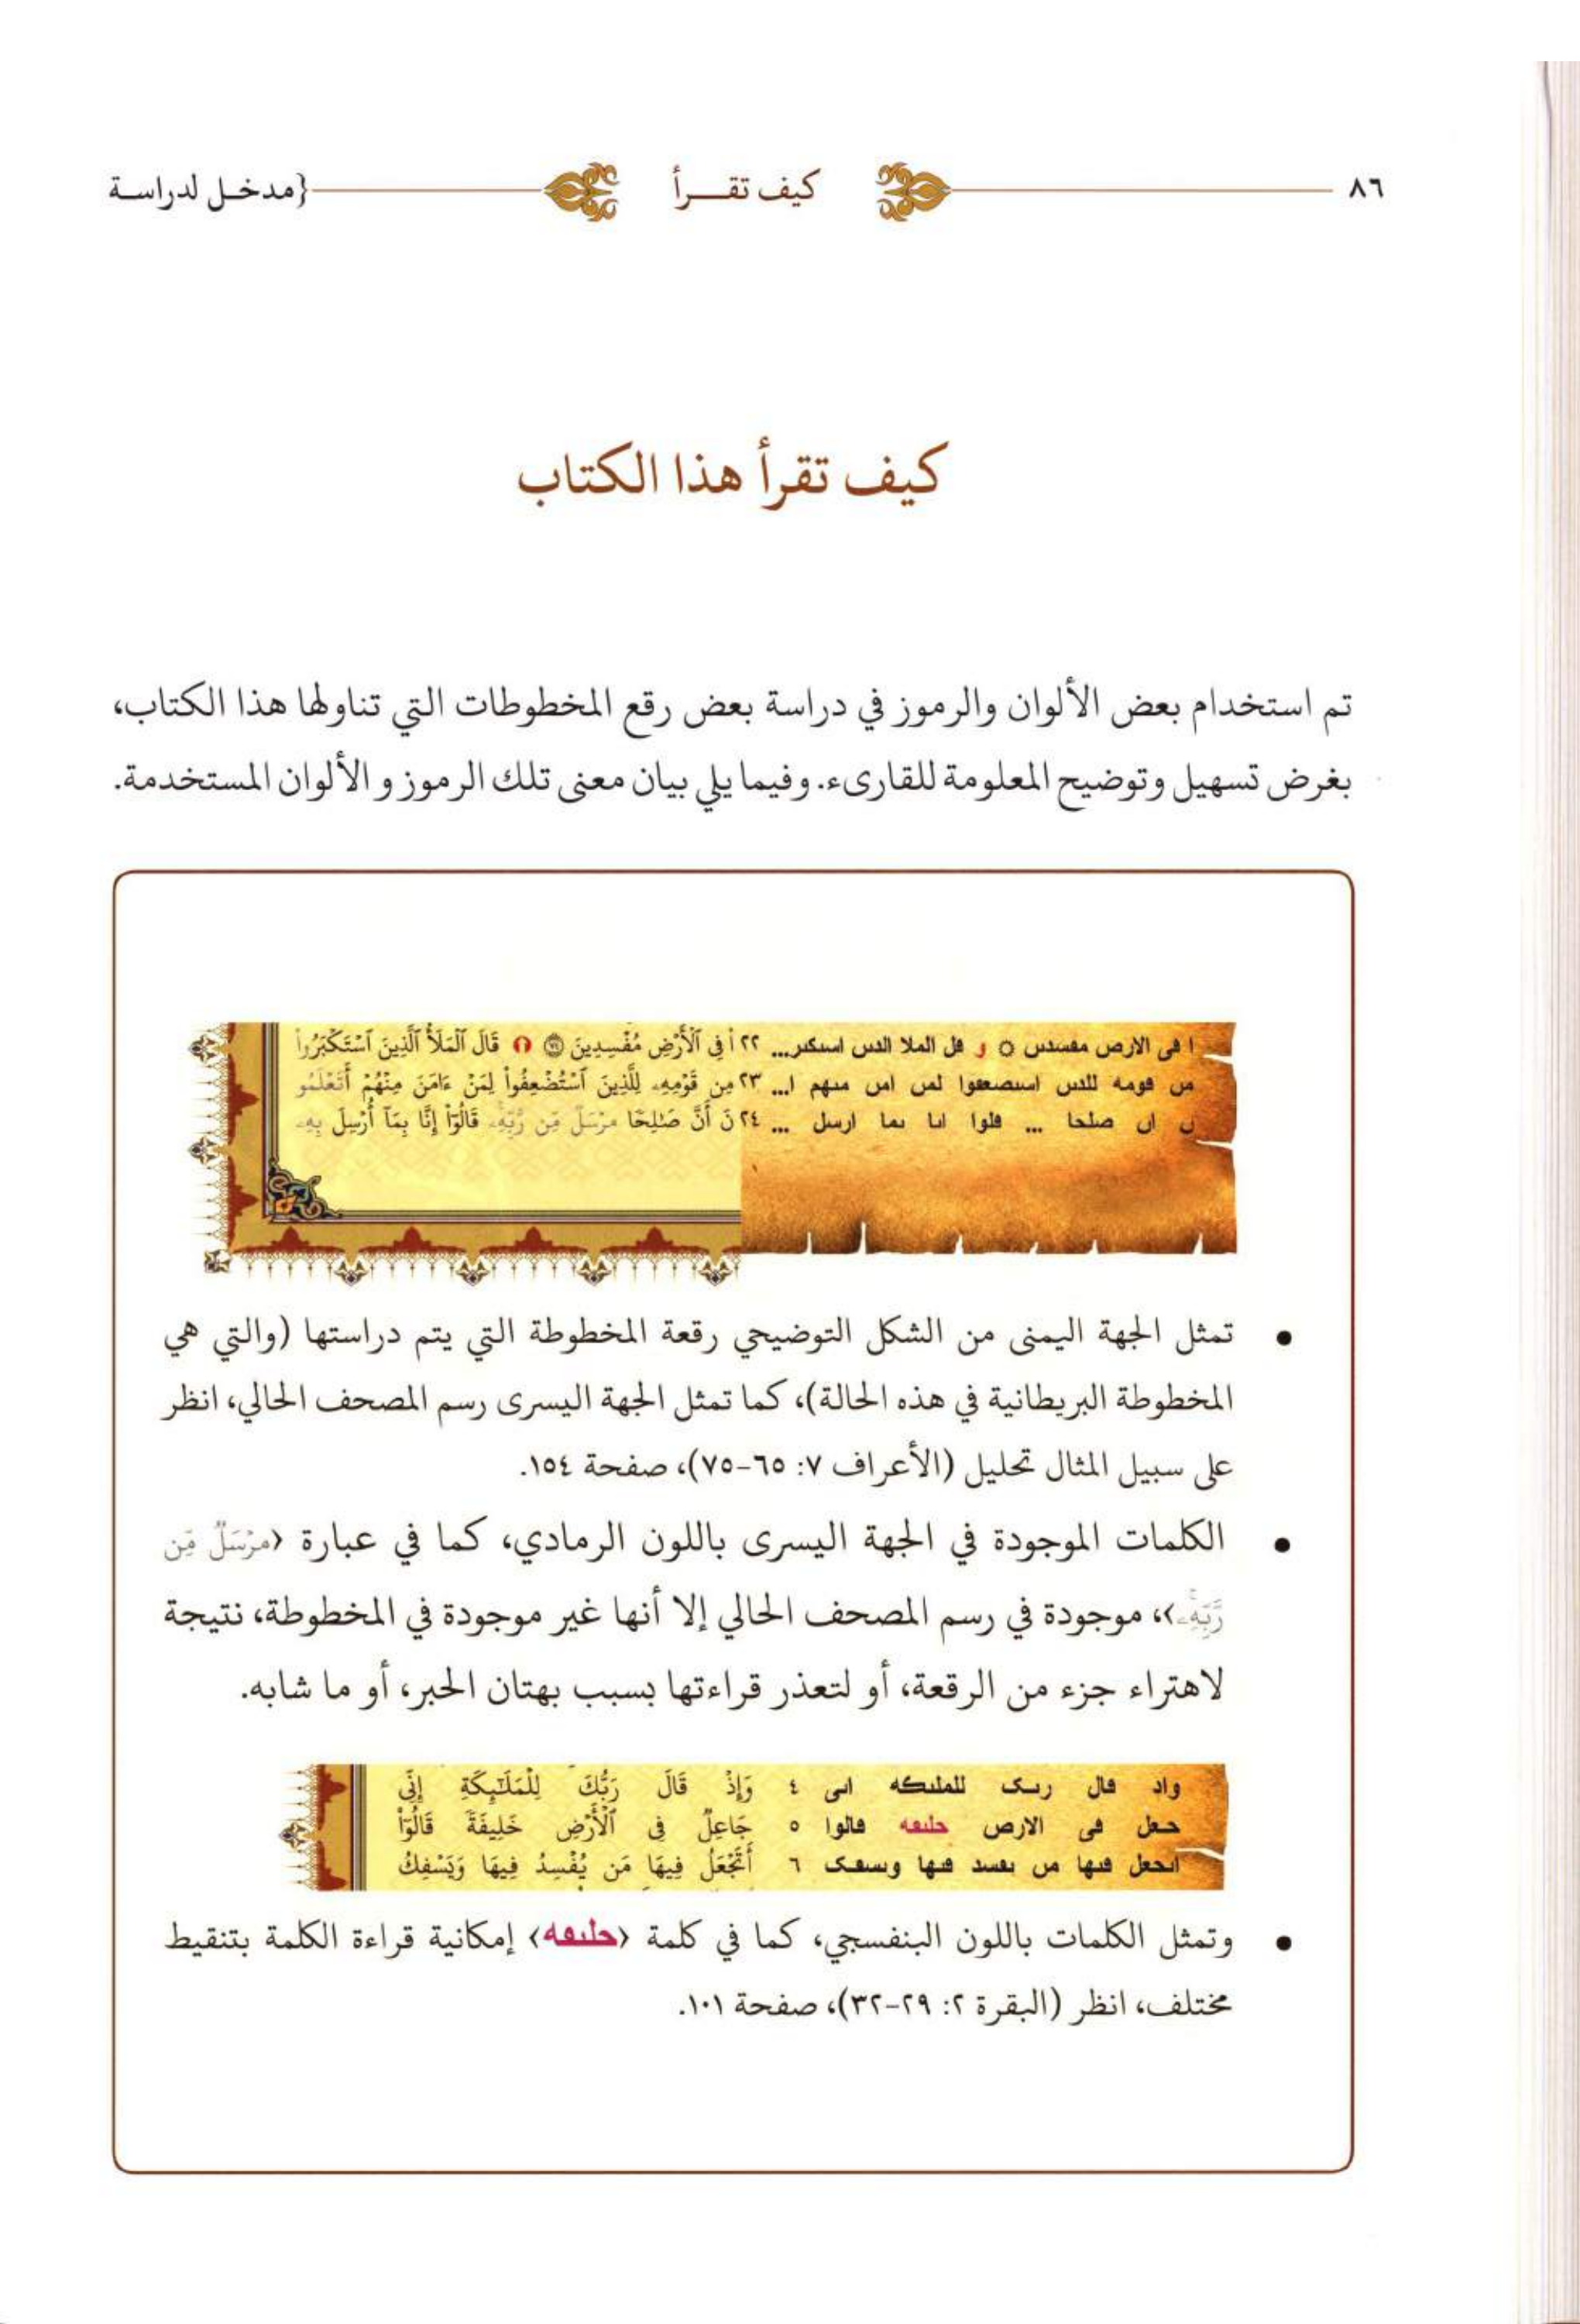 ٨٦ كيف تقـــرأ {مدخـل لدراسـة
كيف تقرأ هذا الكتاب
تم استخدام بعض الألوان والرموز في دراسة بعض رقع المخطوطات التي تناولها هذا الكتاب،
بغرض تسهيل وتوضيح المعلومة للقارىء. وفيما يلي بيان معنى تلك الرموز و الألوان المستخدمة.
ا فى الارص مفسدىں ○ و قل الملا الدىں اسىكىر... ٢٢ أ فِي ٱلۡأَرۡضِ مُفۡسِدِينَ ٧٤ ١ قَالَ ٱلۡمَلَأُ ٱلَّذِينَ ٱسۡتَكۡبَرُواْ
مں ڡومه للدىں اسىصعڡوا لمں امں مىهم ا... ٢٣ مِن قَوۡمِهِۦ لِلَّذِينَ ٱسۡتُضۡعِفُواْ لِمَنۡ ءَامَنَ مِنۡهُمۡ أَتَعۡلَمُو
ں اں صلحا ... ڡلوا اىا ىما ارسل ... ٢٤ نَ أَنَّ صَٰلِحٗا مُّرۡسَلٞ مِّن رَّبِّهِۦۚ قَالُوٓاْ إِنَّا بِمَآ أُرۡسِلَ بِهِۦ
• تمثل الجهة اليمنى من الشكل التوضيحي رقعة المخطوطة التي يتم دراستها (والتي هي
المخطوطة البريطانية في هذه الحالة)، كما تمثل الجهة اليسرى رسم المصحف الحالي، انظر
على سبيل المثال تحليل (الأعراف ٧: ٦٥-٧٥)، صفحة ١٥٤.
• الكلمات الموجودة في الجهة اليسرى باللون الرمادي، كما في عبارة ‹مرۡسَلٞ مِّن
رَّبِّهِۦۚ›، موجودة في رسم المصحف الحالي إلا أنها غير موجودة في المخطوطة، نتيجة
لاهتراء جزء من الرقعة، أو لتعذر قراءتها بسبب بهتان الحبر، أو ما شابه.
واد ڡال رىک للملىکه اىى ٤ وَإِذۡ قَالَ رَبُّكَ لِلۡمَلَٰٓئِكَةِ إِنِّي
حعل ڡى الارص حلىڡه ڡالوا ٥ جَاعِلٞ فِي ٱلۡأَرۡضِ خَلِيفَةٗۖ قَالُوٓاْ
اىحعل ڡىها مں ىڡسد ڡىها وىسڡک ٦ أَتَجۡعَلُ فِيهَا مَن يُفۡسِدُ فِيهَا وَيَسۡفِكُ
• وتمثل الكلمات باللون البنفسجي، كما في كلمة ‹حلىڡه› إمكانية قراءة الكلمة بتنقيط
مختلف، انظر (البقرة ٢: ٢٩-٣٢)، صفحة ١٠١.